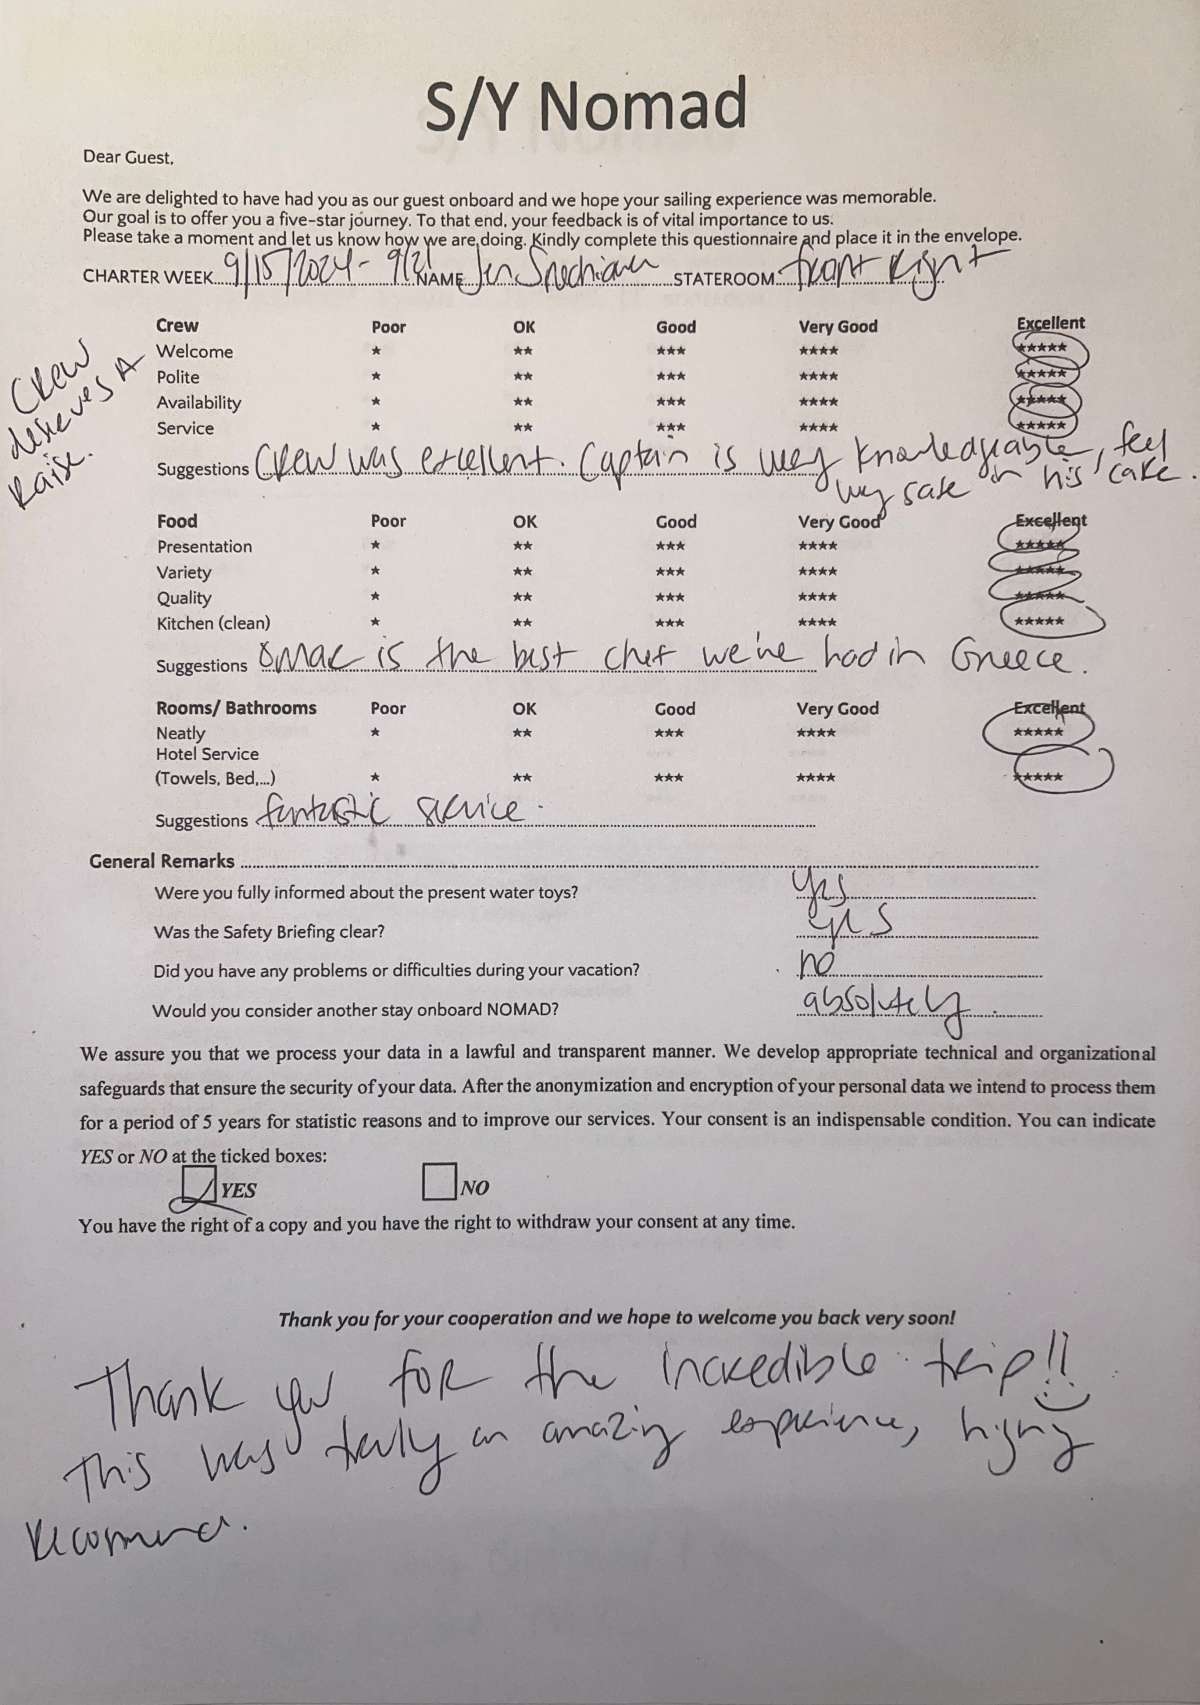 S/Y Nomad
Dear Guest,
We are delighted to have had you as our guest onboard and we hope your sailing experience was memorable.
Our goal is to offer you a five-star journey. To that end, your feedback is of vital importance to us.
Please take a moment and let us know how we are doing. Kindly complete this questionnaire and place it in the envelope.
CHARTER WEEK 9/15/2024 - 9/21 NAME Jen STATEROOM front Right
Crew Poor OK Good Very Good Excellent
Welcome ★ ★★ ★★★ ★★★★ ★★★★★
Polite ★ ★★ ★★★ ★★★★ ★★★★★
Availability ★ ★★ ★★★ ★★★★ ★★★★★
Service ★ ★★ ★★★ ★★★★ ★★★★★
Crew
deserves A
raise.
Suggestions Crew was excellent. Captain is very knowledgeable, feel
very safe in his care.
Food Poor OK Good Very Good Excellent
Presentation ★ ★★ ★★★ ★★★★ ★★★★★
Variety ★ ★★ ★★★ ★★★★ ★★★★★
Quality ★ ★★ ★★★ ★★★★ ★★★★★
Kitchen (clean) ★ ★★ ★★★ ★★★★ ★★★★★
Suggestions Omac is the best chef we've had in Greece.
Rooms/ Bathrooms Poor OK Good Very Good Excellent
Neatly ★ ★★ ★★★ ★★★★ ★★★★★
Hotel Service
(Towels, Bed,...) ★ ★★ ★★★ ★★★★ ★★★★★
Suggestions fantastic service.
General Remarks
Were you fully informed about the present water toys? yes
Was the Safety Briefing clear? yes
Did you have any problems or difficulties during your vacation? no
Would you consider another stay onboard NOMAD? absolutely.
We assure you that we process your data in a lawful and transparent manner. We develop appropriate technical and organizational
safeguards that ensure the security of your data. After the anonymization and encryption of your personal data we intend to process them
for a period of 5 years for statistic reasons and to improve our services. Your consent is an indispensable condition. You can indicate
YES or NO at the ticked boxes:
YES NO
You have the right of a copy and you have the right to withdraw your consent at any time.
Thank you for your cooperation and we hope to welcome you back very soon!
Thank you for the incredible trip!!
This was truly an amazing experience, highly
recommend.